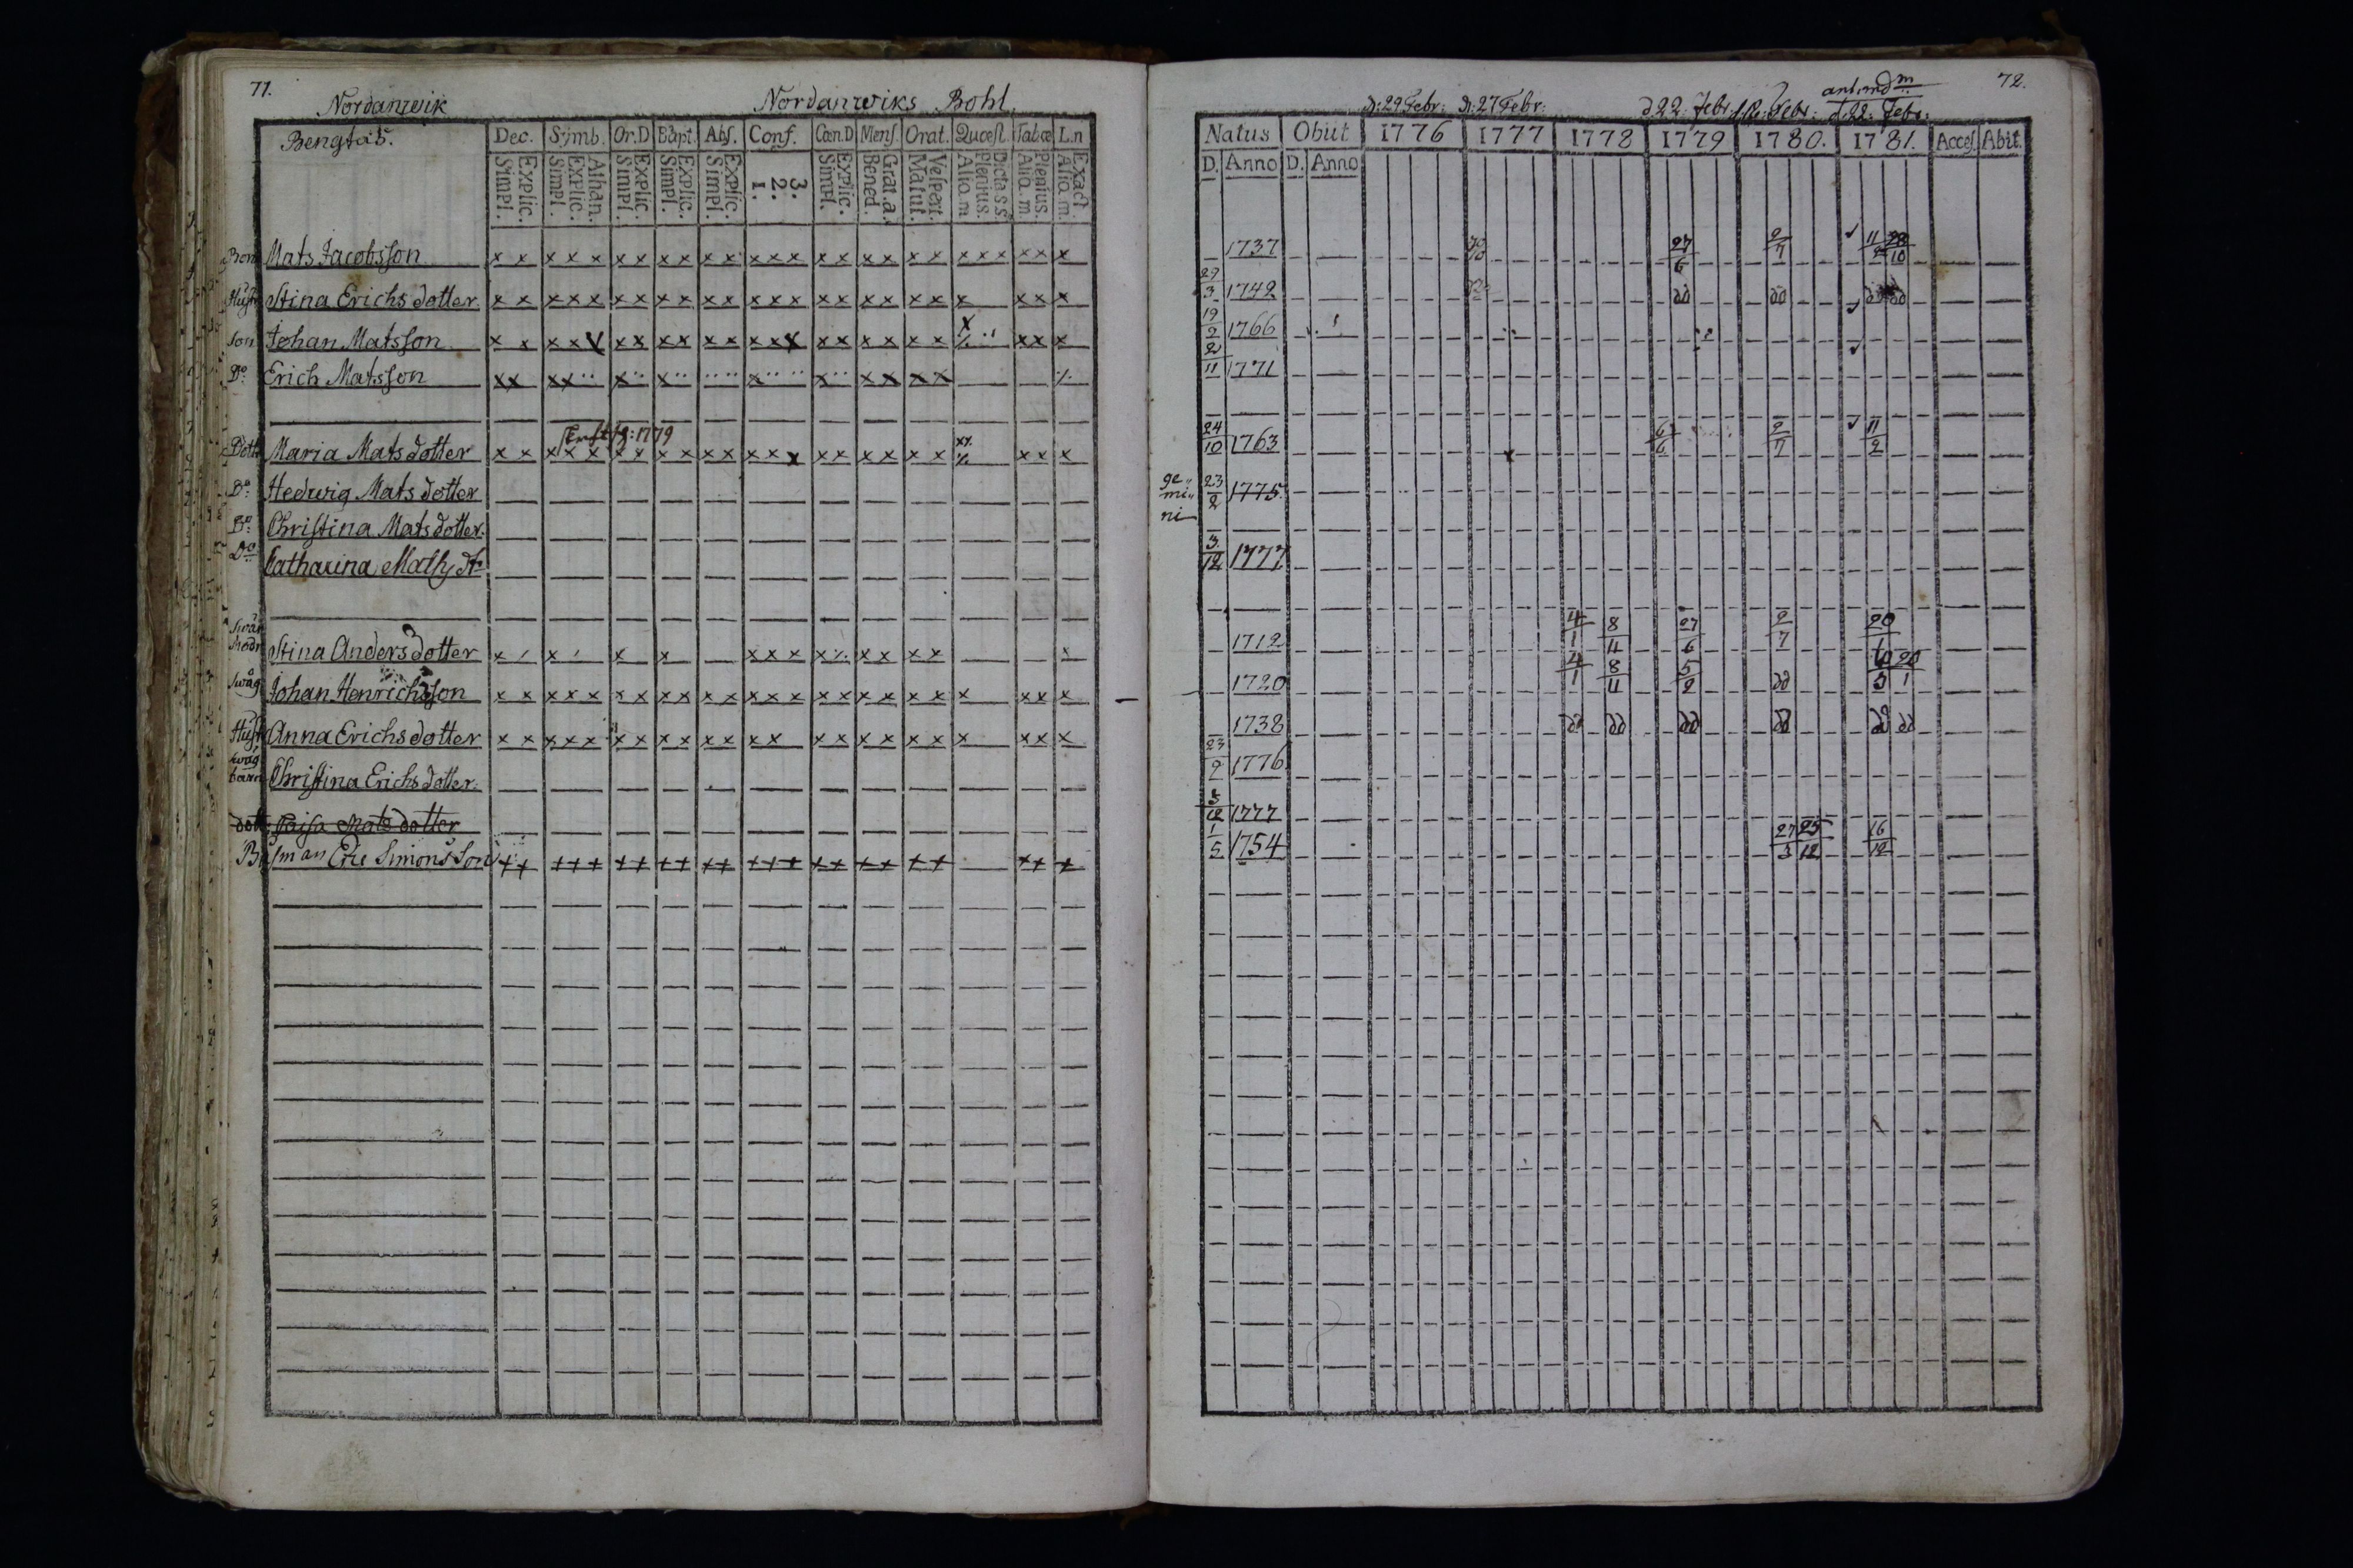 71.
Nordanwik Nordanwiks Bohl.
Bengtås. Dec. Sÿmb. Or.D Bapt. Abs. Conf. Cœn.D Mens. Orat. Quœst. Tabœ L.n
Simpl. Explic. Simpl. Explic. Athan. Simpl. Explic. Simpl. Explic. Simpl. Explic. 1. 2. 3. Simpl. Explic. Bened. Grat. a. Matut. Vespert. Aliq. m. Plenius. Dicta S.S. Aliq. m. Plenius. Aliq. m. Exact.
Bon Mats Jacobsson x x x x x x x x x x x x x x x x x x x x x x x x x x
Hust Stina Erichs dotter. x x x x x x x x x x x x x x x x x x x x x x x x
Son Johan Matsson x x x x x x x x x x x x x x x x x x x x x x
Do Erich Matsson x x x x x x x x x x x x
Dott Maria Mats dotter 1779 x x x x x x x x x x x x x x x x x x x x x x x
Do Hedwig Mats dotter
Do Christina Mats dotter.
Do Catharina Mats dr
Stina Anders dotter x x x x x x x x x x x x x
Swåg Johan Henrichsson x x x x x x x x x x x x x x x x x x x x x x x x
Hust Anna Erichs dotter x x x x x x x x x x x x x x x x x x x x x x x
Swåg barn Christina Erichs dotter.
dott: Caisa Mats dotter
Eric Simons Son + + + + + + + + + + + + + + + + + + + + + + +
72.
d: 29 Febr: d: 27 Febr: d 22. Febr. Febr: d. 22. Febr:
Natus Obiit 1776 1777 1778 1779 1780. 1781. Acces. Abit.
D. Anno D. Anno
1737 27/6 2/7 11/2 28/10
29/3 1742 dd dd dd dd
19/2 1766
2/11 1771
24/10 1763 2/7 11/2
ge„
mi„ 23/2 1775.
ni
3/12 1777
1712 4/1 8/11 27/6 2/7 20/1
1720 4/1 8/11 5/9 dd 20/1
1738 dd dd dd dd dd dd
23/2 1776
3/12 1777
1/5 1754 27/3 25/12 16/12